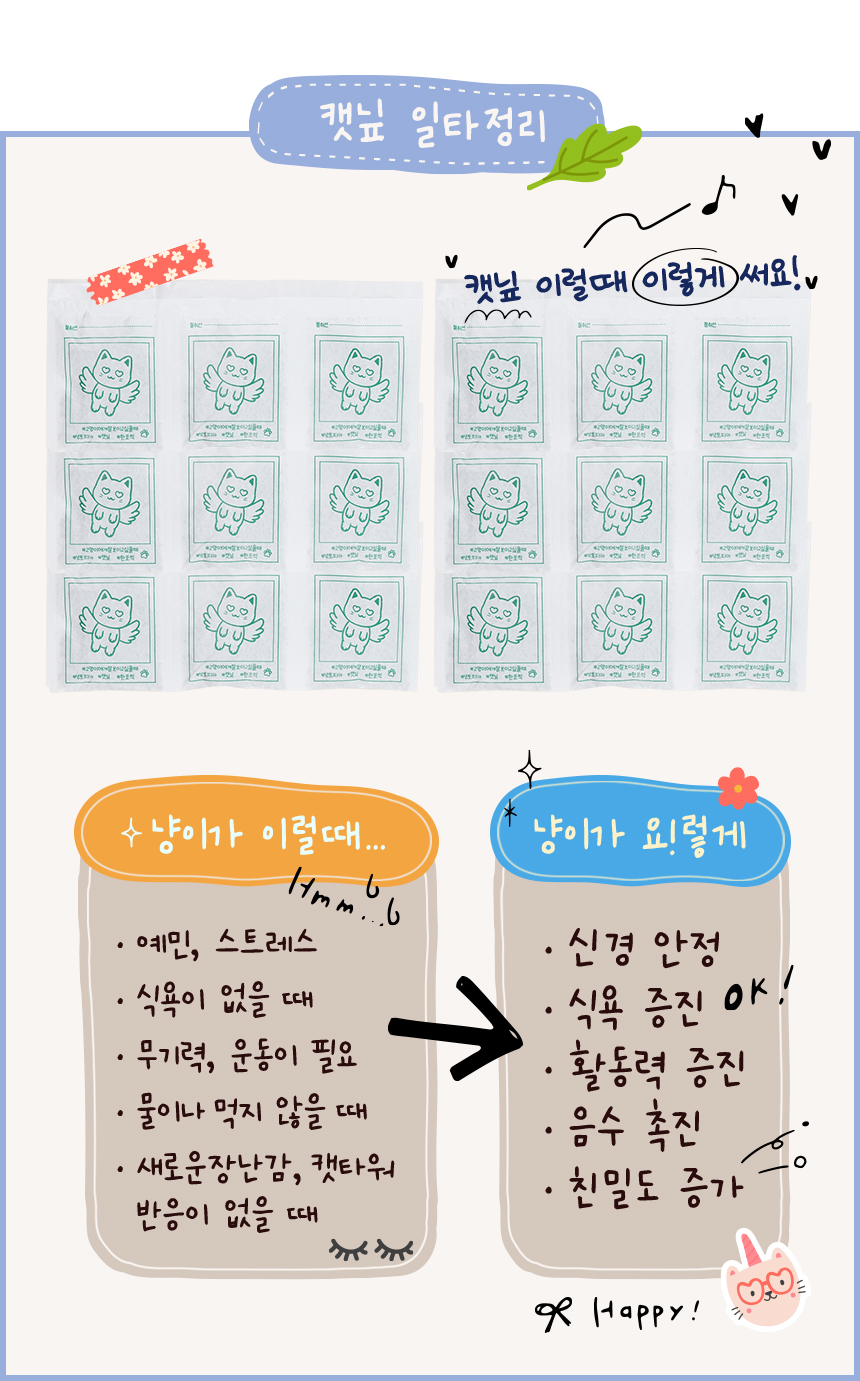 캣닢 일타정리
캣닢 이럴때 이렇게 써요!
#고양이에게잘보이고싶을때
#냥토피아 #캣닢 #한조각
냥이가 이럴때...
Hmm...
· 예민, 스트레스
· 식욕이 없을 때
· 무기력, 운동이 필요
· 물이나 먹지 않을 때
· 새로운장난감, 캣타워
반응이 없을 때
냥이가 요!렇게
· 신경 안정
· 식욕 증진 OK!
· 활동력 증진
· 음수 촉진
· 친밀도 증가
Happy!